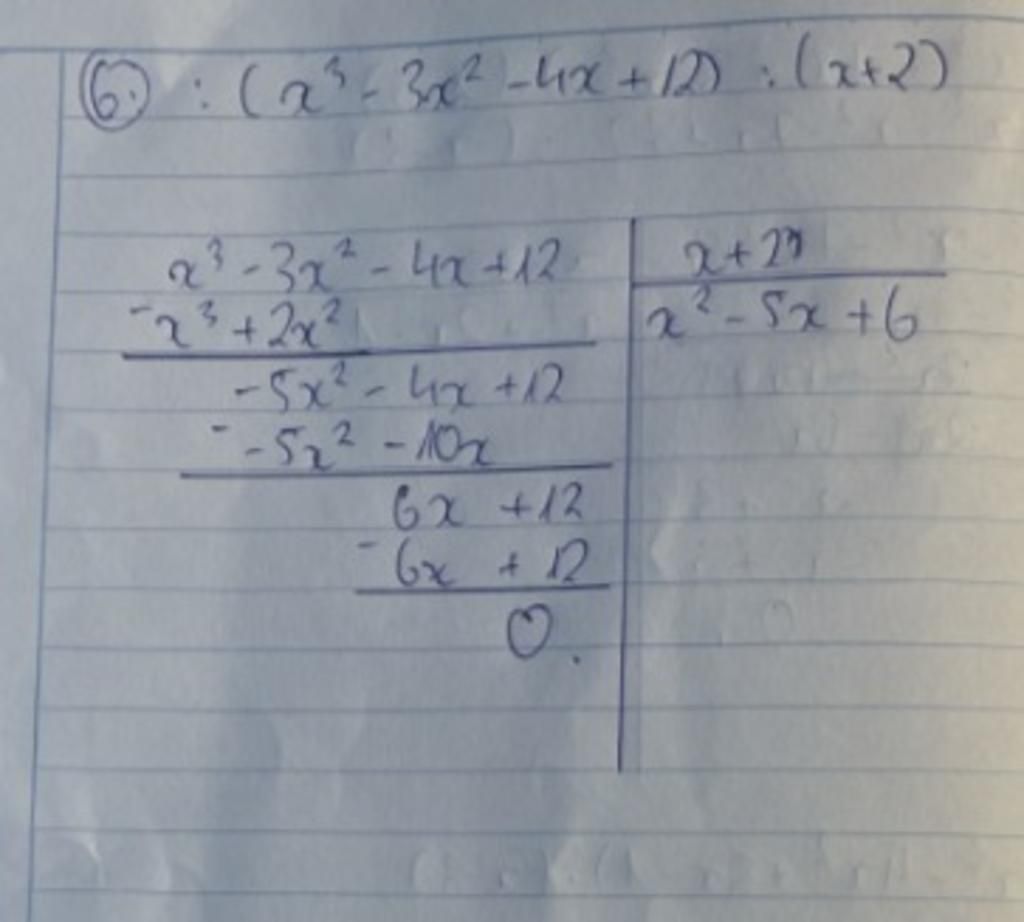 6. : (x³ - 3x² - 4x + 12) : (x+2)
x³ - 3x² - 4x + 12 | x + 2
- x³ + 2x² | x² - 5x + 6
-5x² - 4x + 12
- -5x² - 10x
6x + 12
- 6x + 12
0.